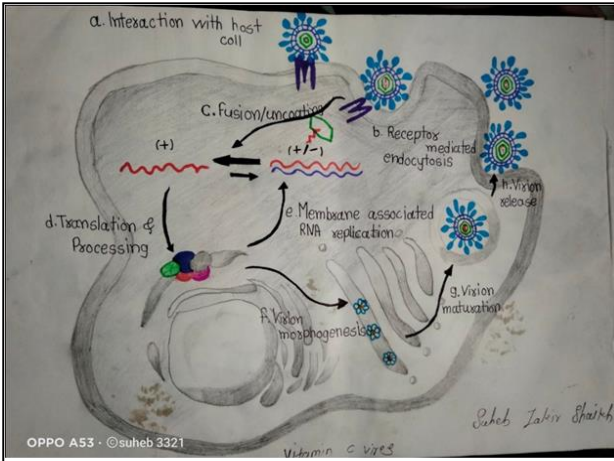 a. Interaction with host
coll
C. Fusion/uncoating
(+)
(+/-)
b. Receptor
mediated
endocytosis
h. Virion
release
d. Translation &
Processing
e. Membrane associated
RNA replication
g. Virion
maturation
f. Virion
morphogenesis
Suheb Zakir Shaikh
OPPO A53 · ©suheb 3321
Vitamin C vires